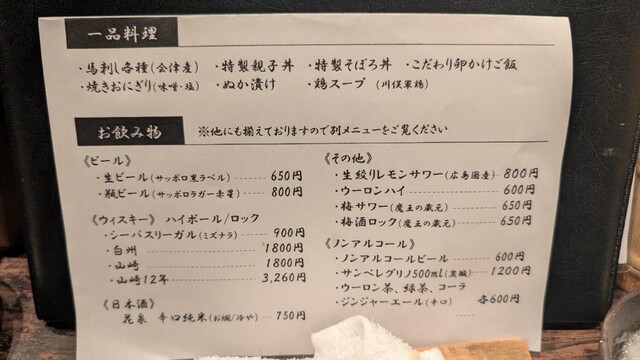 一品料理
・馬刺し各種(会津産) ・特製親子丼 ・特製そぼろ丼 ・こだわり卵かけご飯
・焼きおにぎり(味噌・塩) ・ぬか漬け ・鶏スープ (川俣軍鶏)
お飲み物 ※他にも揃えておりますので別メニューをご覧ください
《ビール》
・生ビール(サッポロ黒ラベル) 650円
・瓶ビール(サッポロラガー赤星) 800円
《ウィスキー》 ハイボール/ロック
・シーバスリーガル(ミズナラ) 900円
・白州 1800円
・山崎 1800円
・山崎12年 3,260円
《日本酒》
花泉 辛口純米(お燗/冷や) 750円
《その他》
・生絞りレモンサワー(広島国産) 800円
・ウーロンハイ 600円
・梅サワー(魔王の蔵元) 650円
・梅酒ロック(魔王の蔵元) 650円
《ノンアルコール》
・ノンアルコールビール 600円
・サンペレグリノ500ml(炭酸) 1200円
・ウーロン茶、緑茶、コーラ
・ジンジャーエール(辛口) 各600円